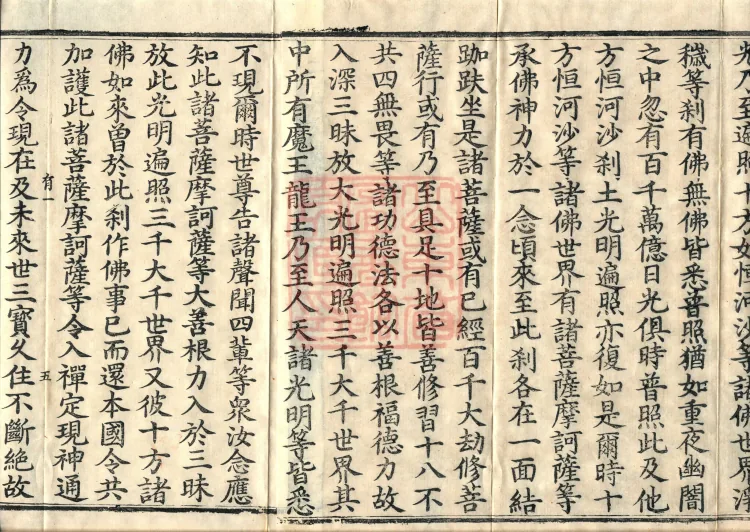 光乃至遍照十方如恒河沙等諸佛世界淨
穢等刹有佛無佛皆悉普照猶如重夜幽闇
之中忽有百千萬億日光俱時普照此及他
方恒河沙刹土光明遍照亦復如是爾時十
方恒河沙等諸佛世界有諸菩薩摩訶薩等
承佛神力於一念頃來至此刹各在一面結
跏趺坐是諸菩薩或有已經百千大劫修菩
薩行或有乃至具足十地皆善修習十八不
共四無畏等諸功德法各以善根福德力故
入深三昧放大光明遍照三千大千世界其
中所有魔王龍王乃至人天諸光明等皆悉
不現爾時世尊告諸聲聞四輩等眾汝念應
知此諸菩薩摩訶薩等大善根力入於三昧
放此光明遍照三千大千世界又彼十方諸
佛如來曾於此刹作佛事已而還本國令共
加護此諸菩薩摩訶薩等令入禪定現神通
有一 五
力爲令現在及未來世三寶久住不斷絕故